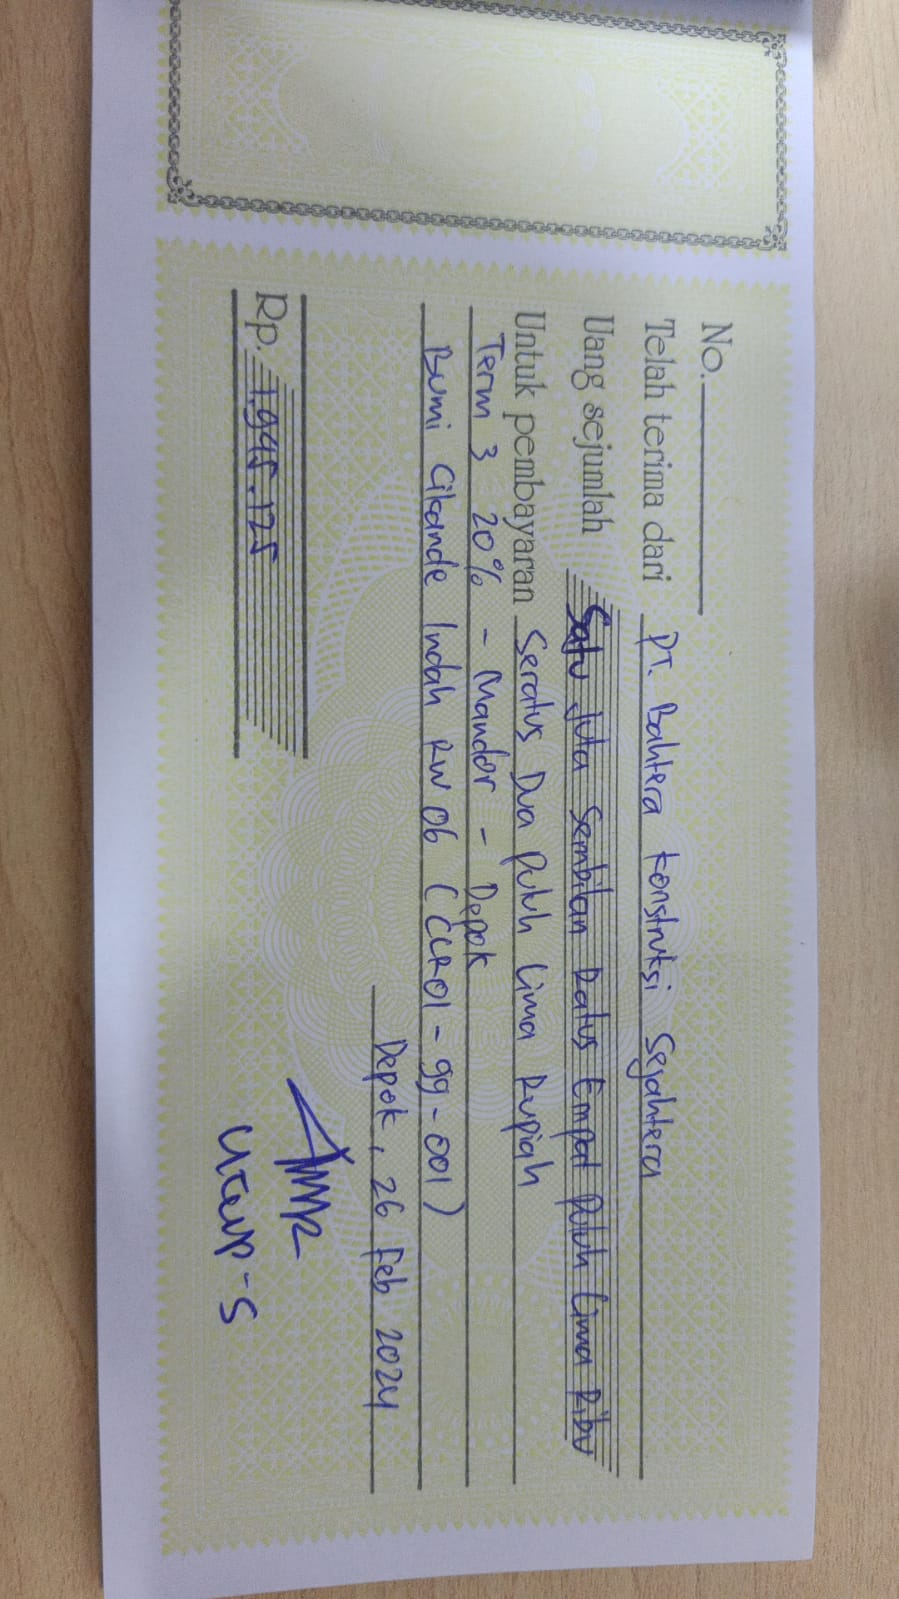 No.
Telah terima dari PT. Bahtera Konstruksi Sejahtera
Uang sejumlah Satu Juta Sembilan Ratus Empat Puluh Lima Ribu
Untuk pembayaran Seratus Dua Puluh Lima Rupiah
Term 3 20% - Mandor - Depok
Bumi Cikande Indah RW 06 (CLR01-99-001)
Depok, 26 Feb 2024
Rp. 1.945.125